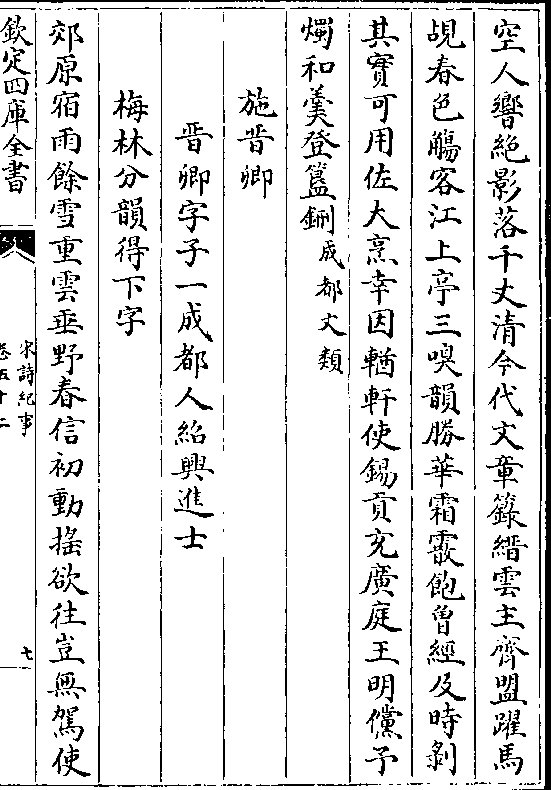 空人響絶影落千丈清今代文章籙縉雲主齊盟躍馬
覘春色觴客江上亭三嗅韻勝華霜霰飽曾經及時剝
其實可用佐大烹幸因輶軒使錫貢充廣庭王明儻予
燭和羹登簋鉶成都文類
施晋卿
晋卿字子一成都人紹興進士
梅林分韻得下字
郊原宿雨餘雪重雲垂野春信初動搖欲往豈無駕使
欽定四庫全書
宋詩紀事
卷五十二
七